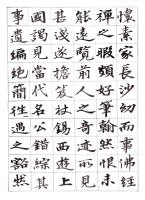 懷素家長沙幼而事佛經
禪之暇頗好筆翰然恨未
能遠覽前人之奇跡所見
甚淺遂擔笈杖錫西遊上
國謁見當代名公錯綜其
事遺編絕簡往往遇之豁然